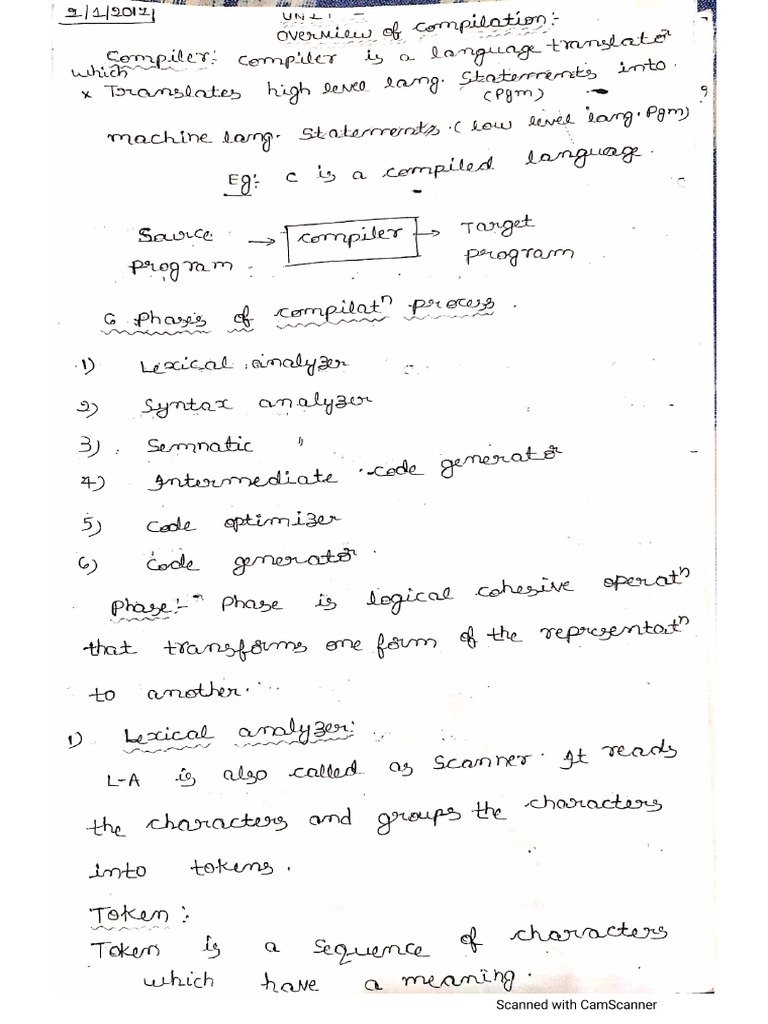 2/1/2017
UNIT-
overview of compilation:-
Compiler: compiler is a language translator
which
x Translates high level lang. statements into
(Pgm)
machine lang. statements. (low level lang. Pgm)
Eg: C is a compiled language.
Source → compiler → Target
program program
6 Phases of compilatn process.
1) Lexical analyzer
2) Syntax analyzer
3) Semnatic "
4) Intermediate code generator
5) code optimizer
6) code generator.
Phase:- Phase is logical cohesive operatn
that transforms one form of the representatn
to another.
1) Lexical analyzer:
L-A is also called as scanner. It reads
the characters and groups the characters
into tokens.
Token:
Token is a sequence of characters
which have a meaning.
Scanned with CamScanner